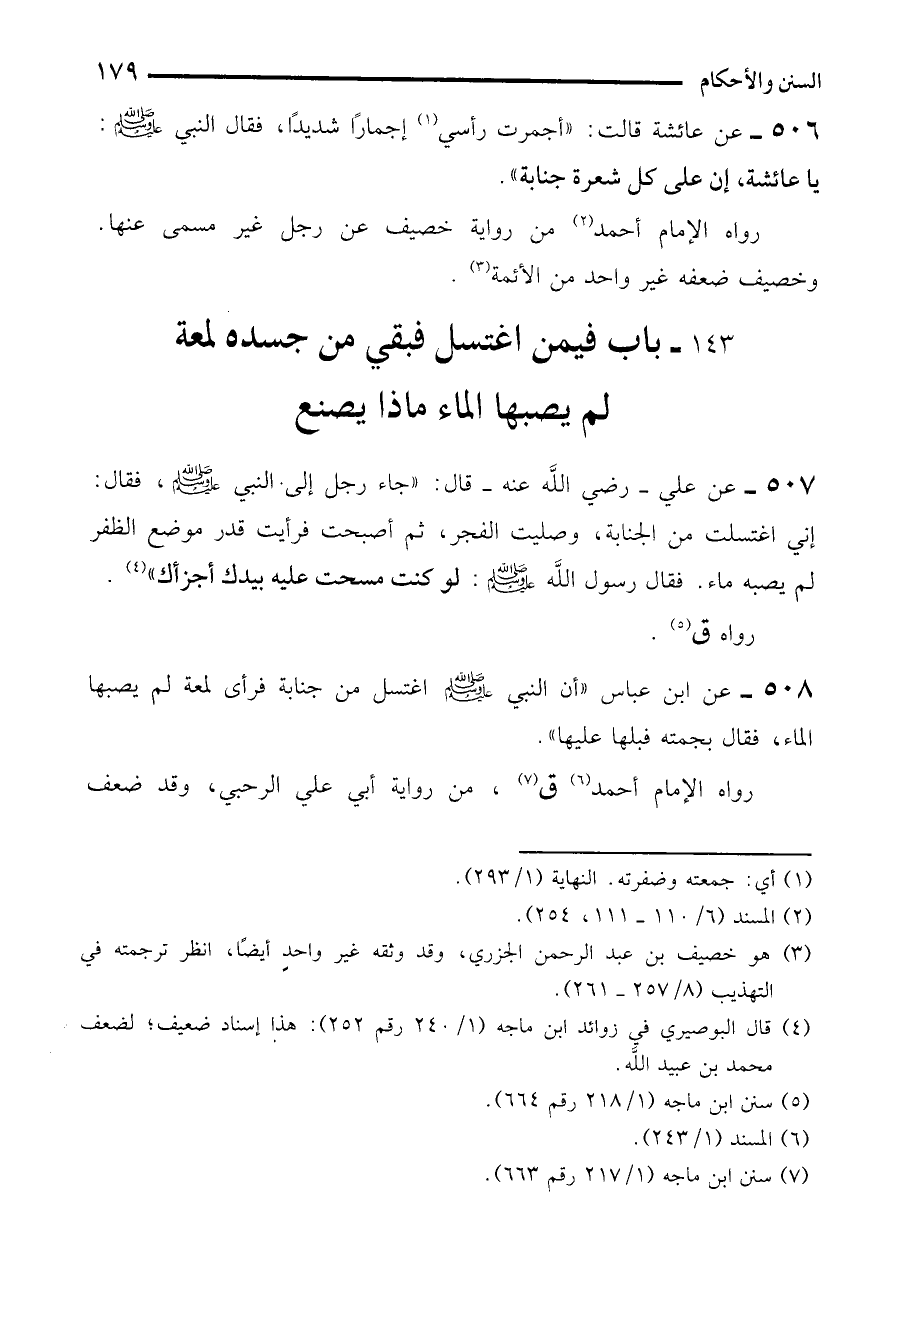 السنن والأحكام ١٧٩
٥٠٦ ـ عن عائشة قالت: «أجمرت رأسي(١) إجمارًا شديدًا، فقال النبي ﷺ :
يا عائشة، إن على كل شعرة جنابة».
رواه الإمام أحمد(٢) من رواية خصيف عن رجل غير مسمى عنها.
وخصيف ضعفه غير واحد من الأئمة(٣) .
١٤٣ ـ باب فيمن اغتسل فبقي من جسده لمعة
لم يصبها الماء ماذا يصنع
٥٠٧ ـ عن علي ـ رضي اللَّه عنه ـ قال: «جاء رجل إلى النبي ﷺ ، فقال:
إني اغتسلت من الجنابة، وصليت الفجر، ثم أصبحت فرأيت قدر موضع الظفر
لم يصبه ماء. فقال رسول اللَّه ﷺ : لو كنت مسحت عليه بيدك أجزأك»(٤) .
رواه ق(٥) .
٥٠٨ ـ عن ابن عباس «أن النبي ﷺ اغتسل من جنابة فرأى لمعة لم يصبها
الماء، فقال بجمته فبلها عليها».
رواه الإمام أحمد(٦) ق(٧) ، من رواية أبي علي الرحبي، وقد ضعف
(١) أي: جمعته وضفرته. النهاية (١/ ٢٩٣).
(٢) المسند (٦/ ١١٠ ـ ١١١، ٢٥٤).
(٣) هو خصيف بن عبد الرحمن الجزري، وقد وثقه غير واحد أيضًا، انظر ترجمته في
التهذيب (٨/ ٢٥٧ ـ ٢٦١).
(٤) قال البوصيري في زوائد ابن ماجه (١/ ٢٤٠ رقم ٢٥٢): هذا إسناد ضعيف؛ لضعف
محمد بن عبيد اللَّه.
(٥) سنن ابن ماجه (١/ ٢١٨ رقم ٦٦٤).
(٦) المسند (١/ ٢٤٣).
(٧) سنن ابن ماجه (١/ ٢١٧ رقم ٦٦٣).